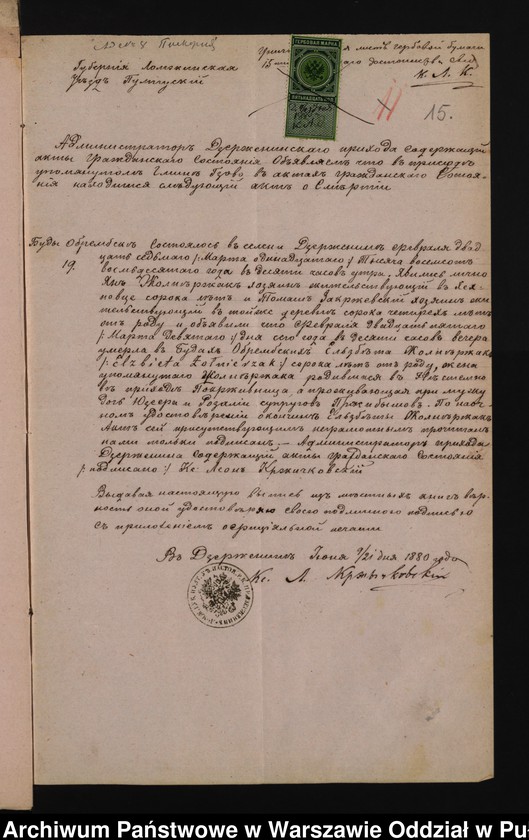 Губернія Ломжинская
Уѣздъ Пултускій
листъ гербовой бумаги
15
К. Л. К.
ГЕРБОВАЯ МАРКА
ПЯТЬНАДЦАТЬ КОП.
15.
Администраторъ Дзержешинскаго прихода содержащій
акты Гражданскаго Состоянія Объявляетъ что въ приходѣ
упомянутомъ въ актахъ гражданскаго Состоя-
нія находится слѣдующій актъ о Смертіи
Буды Обрембскіе Состоялось въ селеніи Дзерженинѣ февраля двад-
19. цать седьмаго /:Марта одинадцатаго:/ Тысяча восемсотъ
восмьдесятаго года въ десяти часовъ утра. Явились лично
Янъ Жолнѣржакъ хозяинъ жительствующій въ
сорока лѣтъ и Томашъ Закржевскій хозяинъ жи-
тельствующій въ тойже деревнѣ сорока четырехъ лѣтъ
отъ роду и объявили что Февраля двадцать пятаго
/:Марта Девятаго:/ дня сего года въ десяти часовъ вечера
умерла въ Будахъ Обрембскихъ Ельзбѣта Жолнѣржакъ
/:Elżbieta Żołnierzak:/ сорока лѣтъ отъ роду, жена
упомянутаго Жолнѣржака родившаяся въ
въ приходѣ а проживающая при мужу
дочь Юзефа и Розаліи супруговъ По насто-
номъ удостовѣреніи окончинѣ Ельзбѣты Жолнѣржакъ
Актъ сей присутствующимъ неграмотнымъ прочитанъ
нами только подписанъ. — Администраторъ прихода
Дзерженинъ Содержащій акты гражданскаго Состоянія
/:подписано:/ Кс: Леонъ Кржичковскій
Выдавая настоящую выпись изъ мѣстныхъ книгъ вѣр-
ность оной удостовѣряю своею подлинною подписью
съ приложеніемъ оффиціальной печати
Въ Дзерженинѣ Іюня 9/21 дня 1880 года
Кс. Л. Кржычковскій
Archiwum Państwowe w Warszawie Oddział w Pu